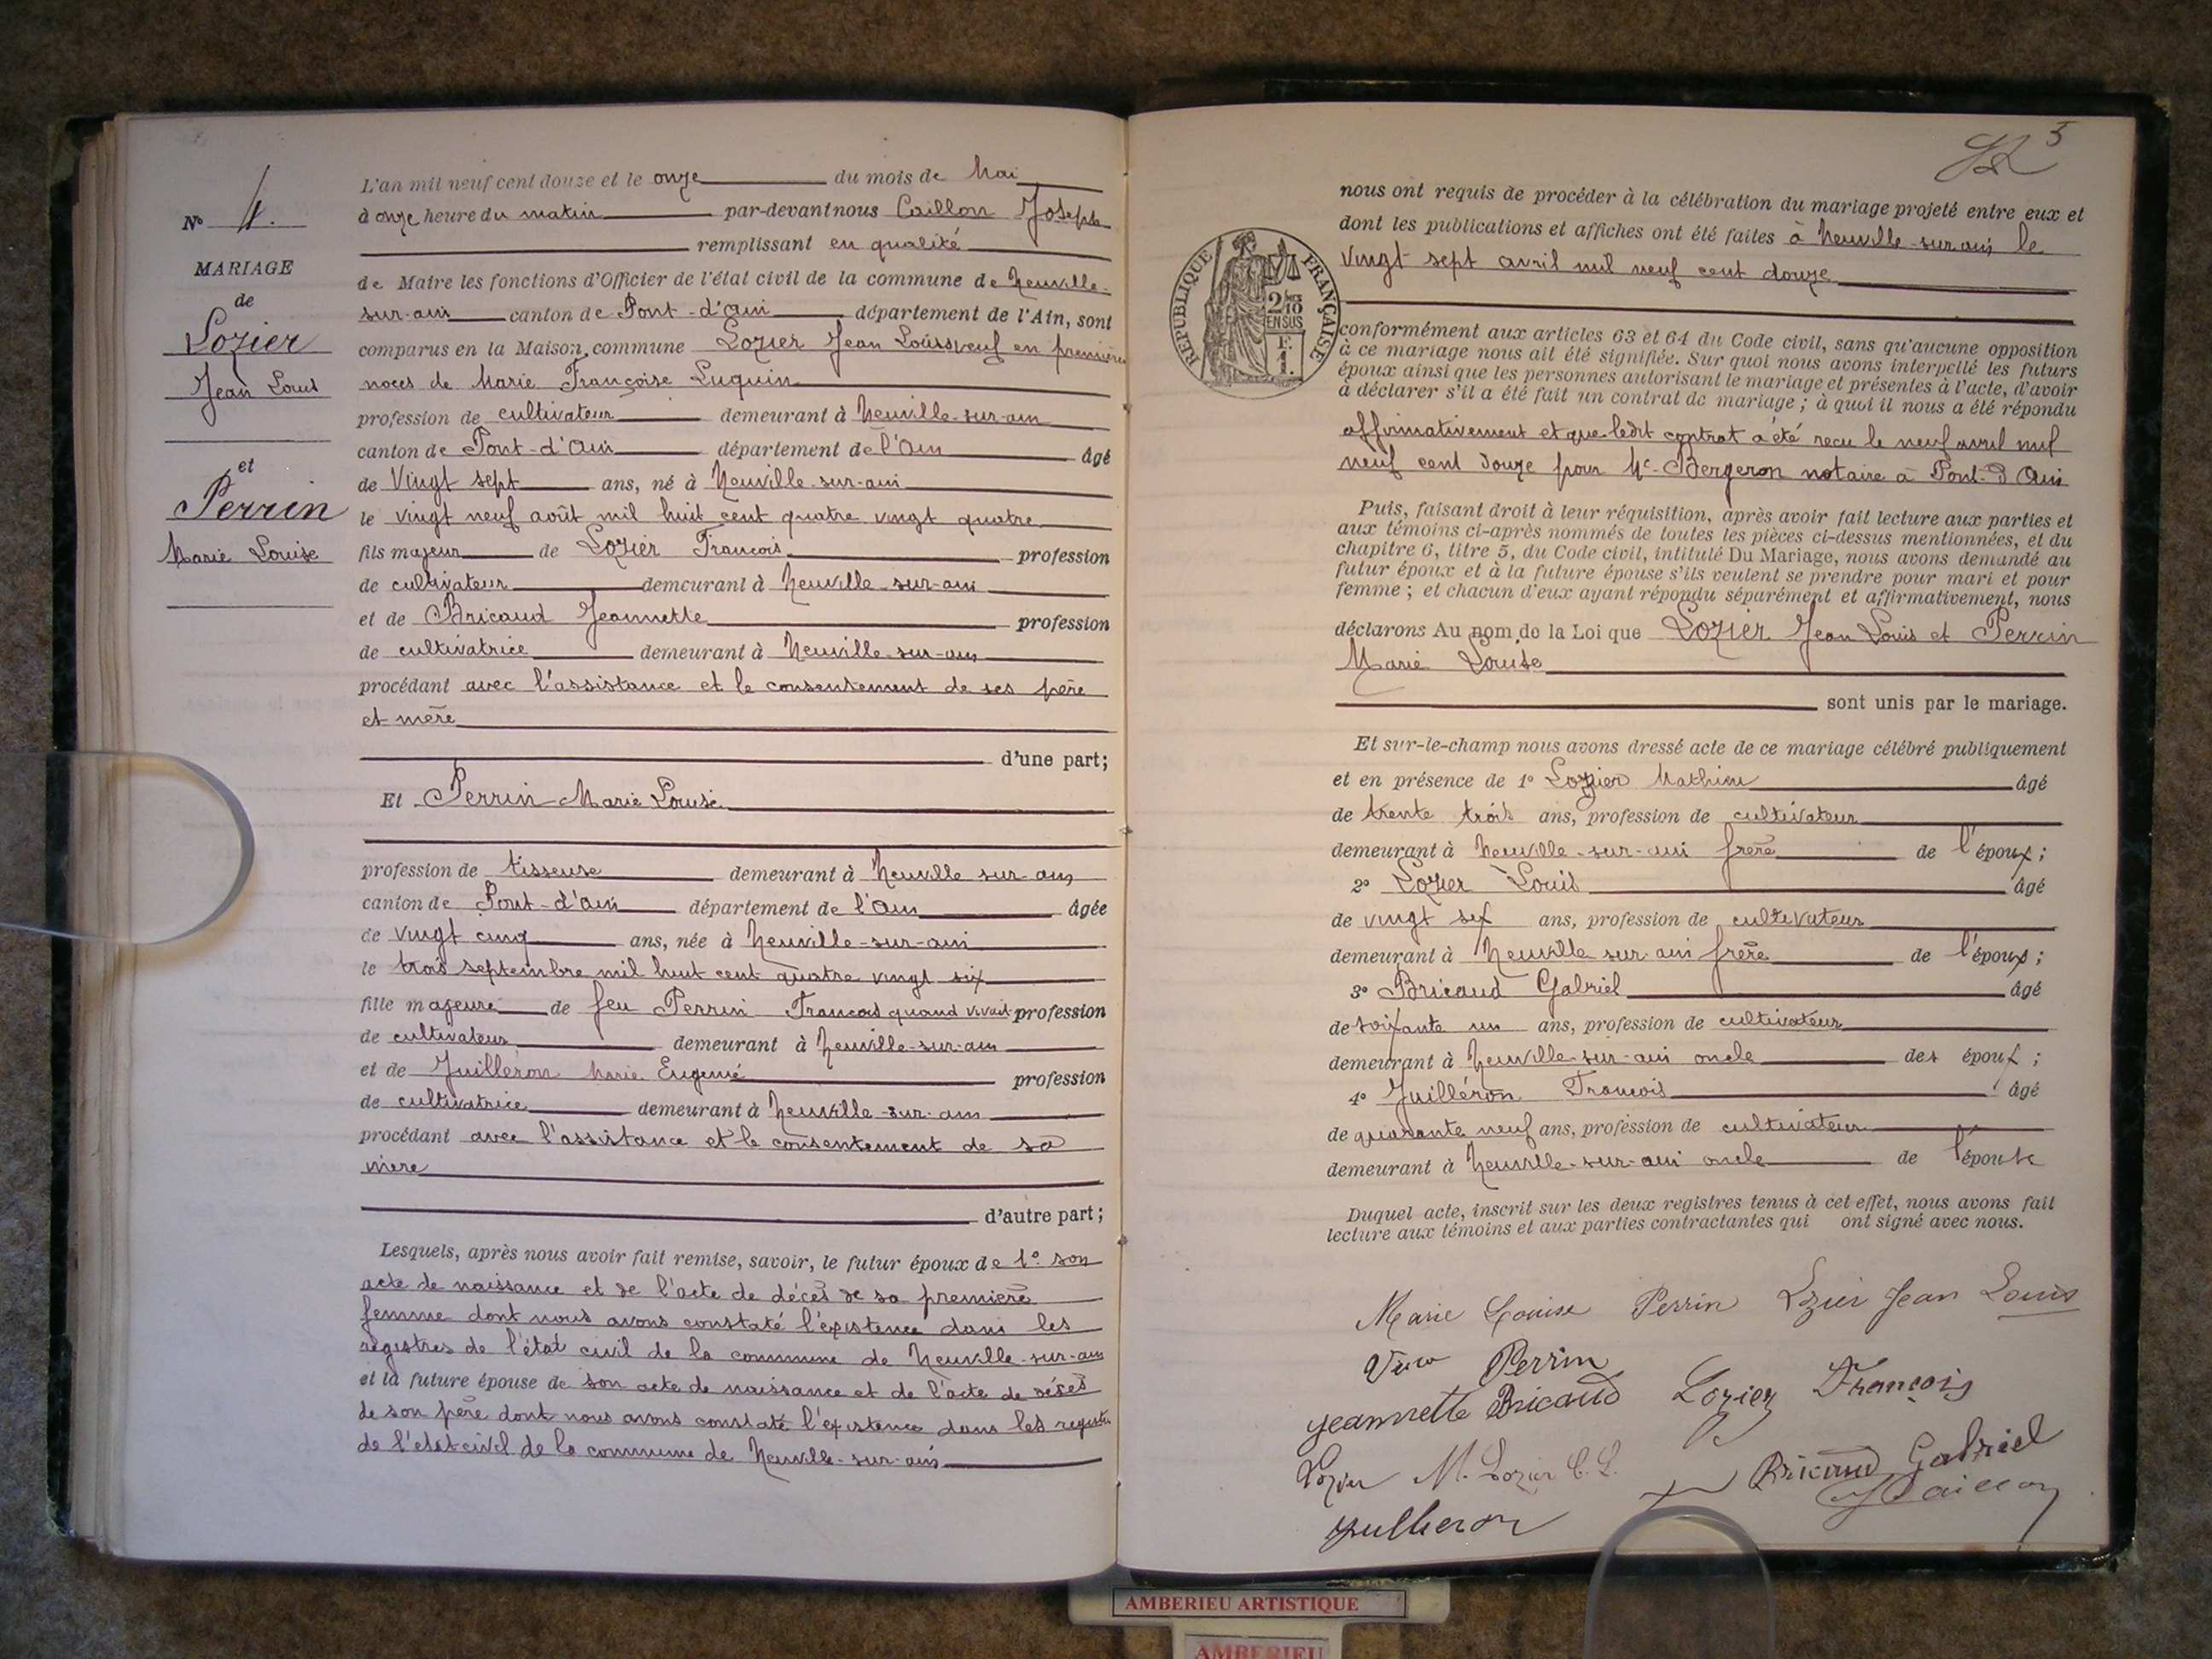 N° 4.
MARIAGE
de
Lozier
Jean Louis
et
Perrin
Marie Louise
L'an mil neuf cent douze et le onze du mois de Mai
à onze heure du matin par-devant nous Caillon Joseph
remplissant en qualité
de Maire les fonctions d'Officier de l'état civil de la commune de Neuville-
sur-ain canton de Pont-d'ain département de l'Ain, sont
comparus en la Maison commune Lozier Jean Louis veuf en premières
noces de Marie Françoise Luquin
profession de cultivateur demeurant à Neuville-sur-ain
canton de Pont-d'Ain département de l'Ain âgé
de Vingt sept ans, né à Neuville-sur-ain
le vingt neuf août mil huit cent quatre vingt quatre
fils majeur de Lozier François profession
de cultivateur demeurant à Neuville-sur-ain
et de Bricaud Jeannette profession
de cultivatrice demeurant à Neuville-sur-ain
procédant avec l'assistance et le consentement de ses père
et mère
d'une part;
Et Perrin Marie Louise
profession de tisseuse demeurant à Neuville sur-ain
canton de Pont-d'ain département de l'Ain âgée
de vingt cinq ans, née à Neuville-sur-ain
le trois septembre mil huit cent quatre vingt six
fille majeure de feu Perrin Francois quand vivait profession
de cultivateur demeurant à Neuville-sur-ain
et de Juilléron Marie Eugenie profession
de cultivatrice demeurant à Neuville-sur-ain
procédant avec l'assistance et le consentement de sa
mère
d'autre part;
Lesquels, après nous avoir fait remise, savoir, le futur époux de 1° son
acte de naissance et de l'acte de décès de sa première
femme dont nous avons constaté l'existence dans les
régistres de l'état civil de la commune de Neuville-sur-ain
et la future épouse de son acte de naissance et de l'acte de décès
de son père dont nous avons constaté l'existence dans les registres
de l'état civil de la commune de Neuville-sur-ain
5
RÉPUBLIQUE FRANÇAISE
2/10
EN SUS
F.
1.
nous ont requis de procéder à la célébration du mariage projeté entre eux et
dont les publications et affiches ont été faites à Neuville-sur ain le
Vingt sept avril mil neuf cent douze
conformément aux articles 63 et 64 du Code civil, sans qu'aucune opposition
à ce mariage nous ait été signifiée. Sur quoi nous avons interpellé les futurs
époux ainsi que les personnes autorisant le mariage et présentes à l'acte, d'avoir
à déclarer s'il a été fait un contrat de mariage; à quoi il nous a été répondu
affirmativement et que ledit contrat a été recu le neuf avril mil
neuf cent douze par Me Bergeron notaire à Pont-d'Ain
Puis, faisant droit à leur réquisition, après avoir fait lecture aux parties et
aux témoins ci-après nommés de toutes les pièces ci-dessus mentionnées, et du
chapitre 6, titre 5, du Code civil, intitulé Du Mariage, nous avons demandé au
futur époux et à la future épouse s'ils veulent se prendre pour mari et pour
femme; et chacun d'eux ayant répondu séparément et affirmativement, nous
déclarons Au nom de la Loi que Lozier Jean Louis et Perrin
Marie Louise
sont unis par le mariage.
Et sur-le-champ nous avons dressé acte de ce mariage célébré publiquement
et en présence de 1° Lozier Mathieu âgé
de trente trois ans, profession de cultivateur
demeurant à Neuville-sur-ain frère de l'époux;
2° Lozier Louis âgé
de vingt six ans, profession de cultivateur
demeurant à Neuville sur-ain frère de l'époux;
3° Bricaud Gabriel âgé
de soixante un ans, profession de cultivateur
demeurant à Neuville-sur-ain oncle des époux;
4° Juilléron Francois âgé
de quarante neuf ans, profession de cultivateur
demeurant à Neuville-sur-ain oncle de l'épouse
Duquel acte, inscrit sur les deux registres tenus à cet effet, nous avons fait
lecture aux témoins et aux parties contractantes qui ont signé avec nous.
Marie Louise Perrin Lozier Jean Louis
Perrin
Jeannette Bricaud Lozier François
Lozier M. Lozier C. L. Bricaud Gabriel
Juilleron J Caillon
AMBERIEU ARTISTIQUE
AMBERIEU